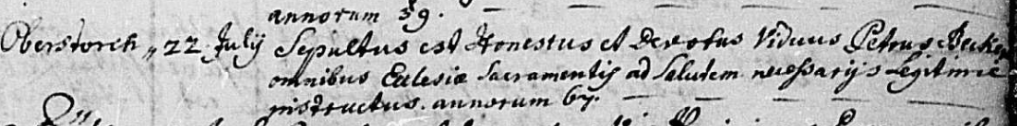 annorum 39.
Oberstorch „ 22 July Sepultus est Honestus et Devotus Viduus Petrus Becker
omnibus Eclesiæ Sacramentis ad Salutem necessarijs Legitime
instructus. annorum 67.